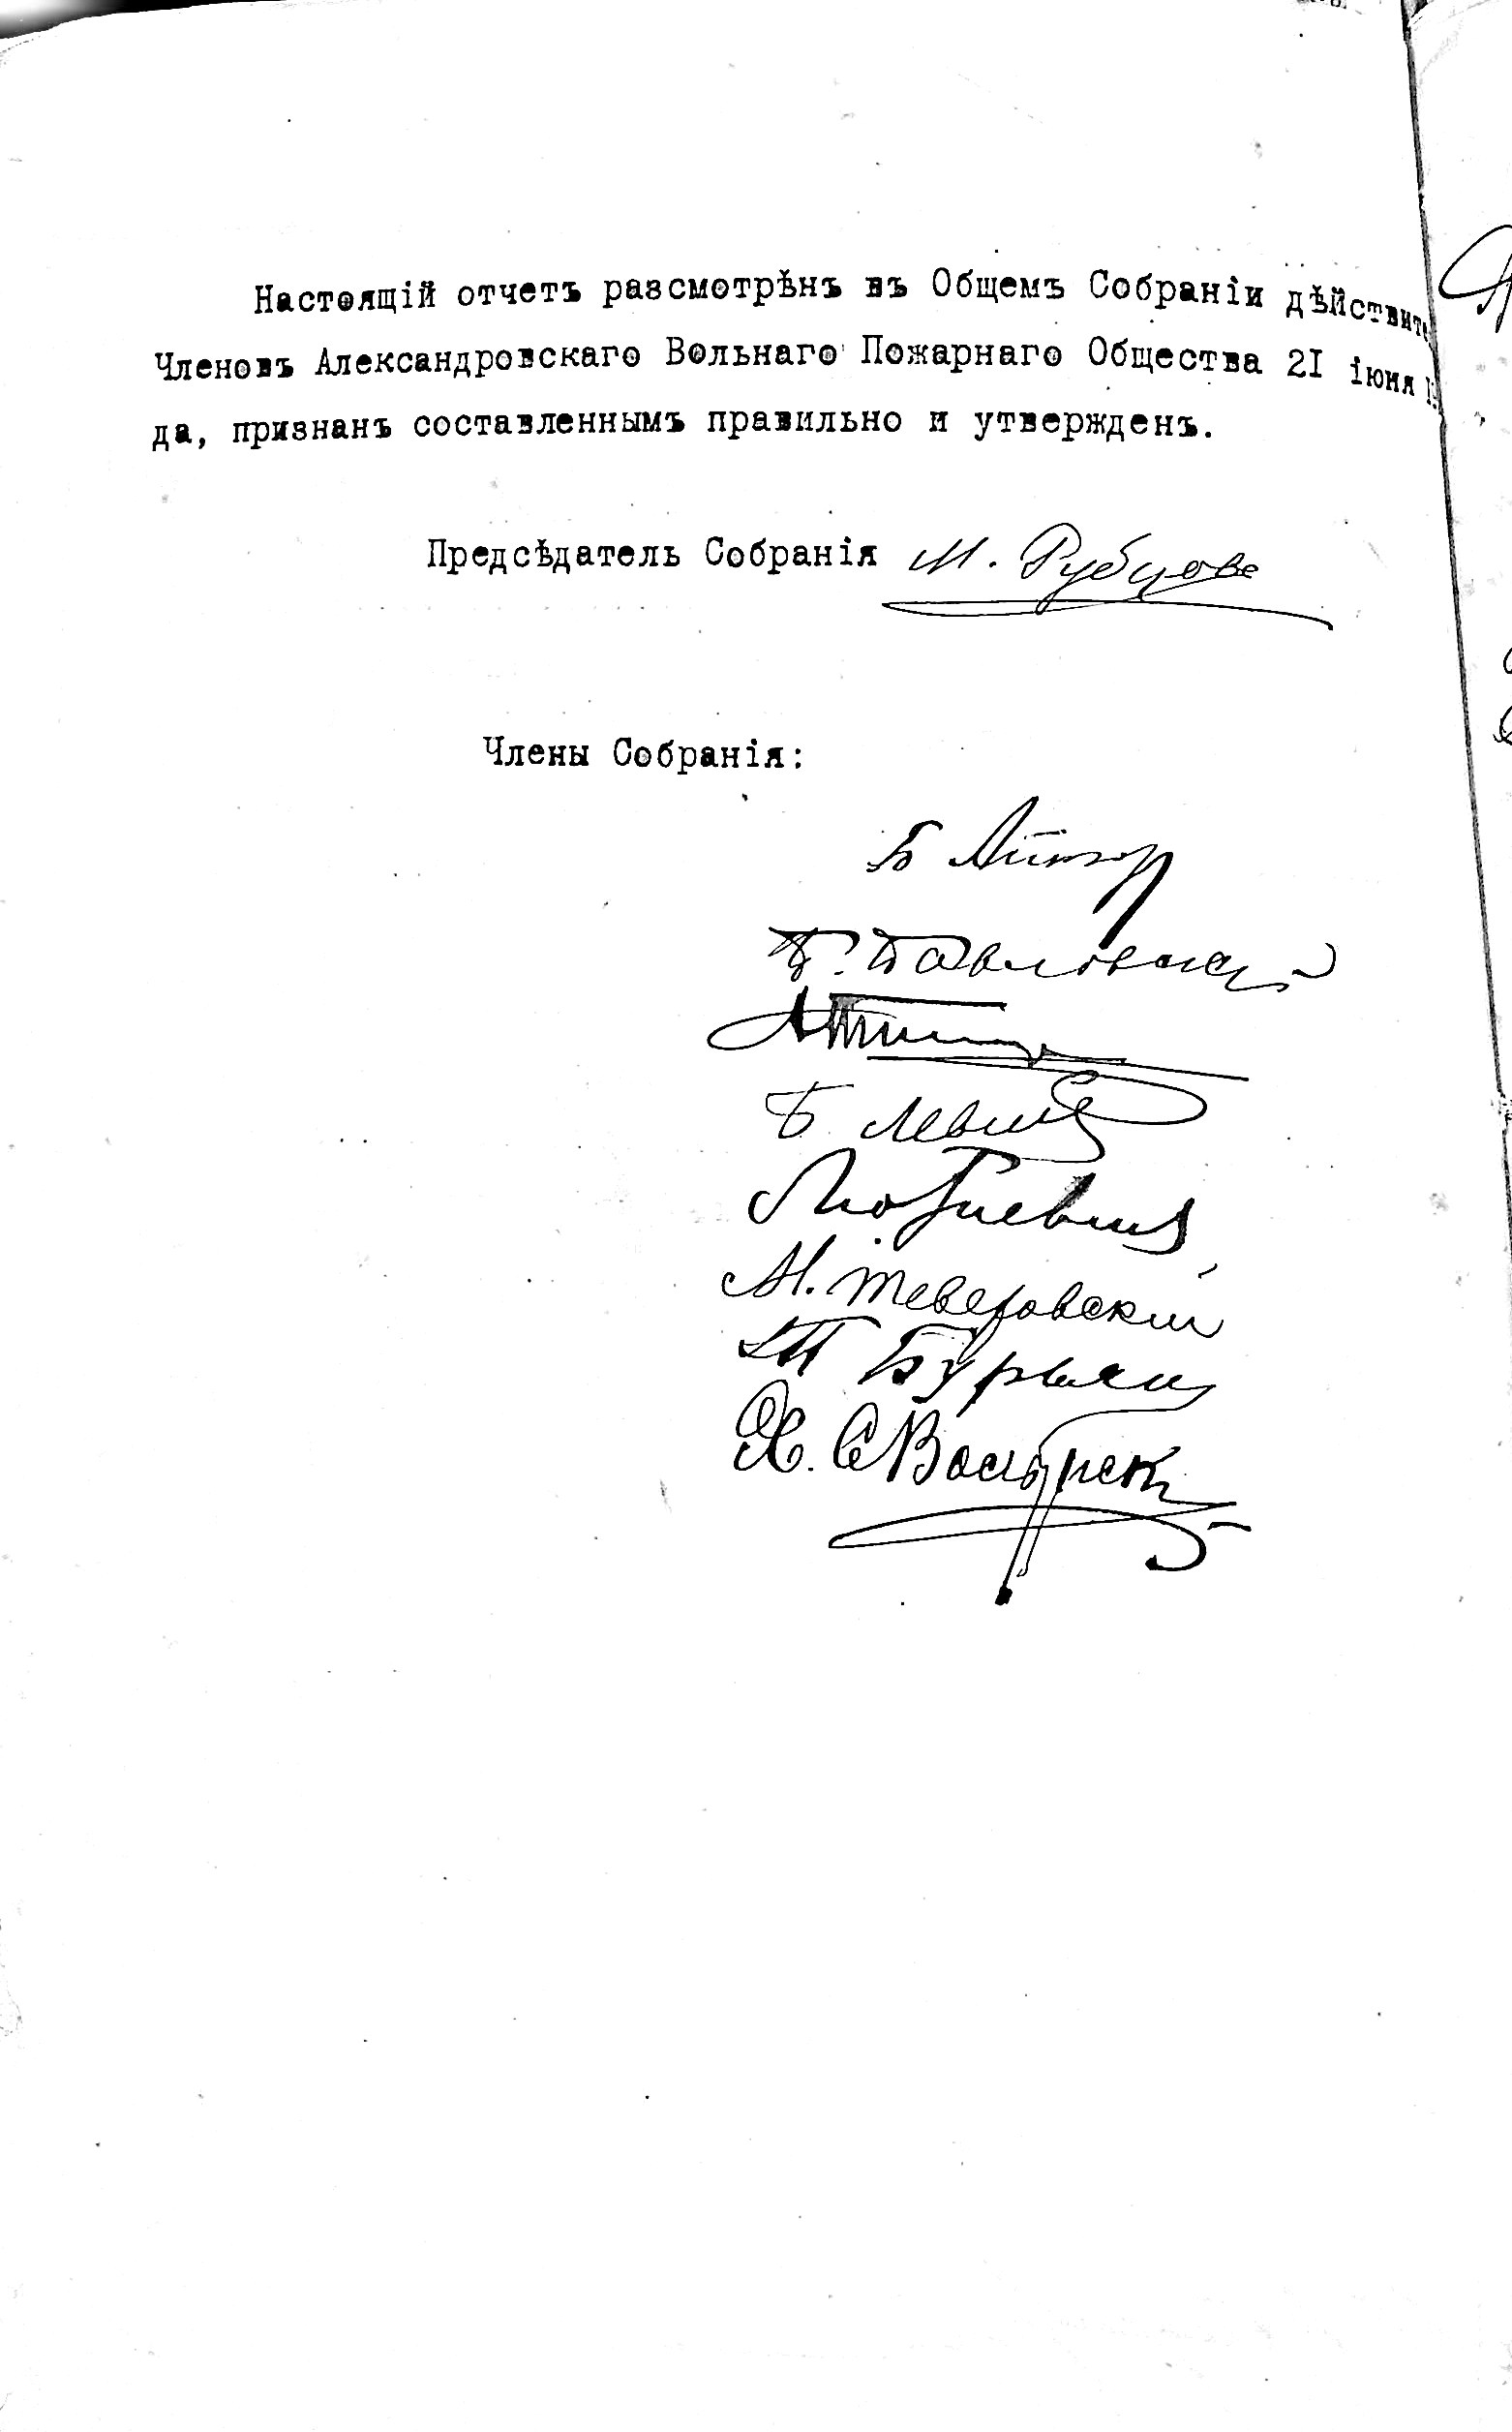 Настоящій отчетъ разсмотрѣнъ въ Общемъ Собраніи дѣйствите
Членовъ Александровскаго Вольнаго Пожарнаго Общества 2I іюня I
да, признанъ составленнымъ правильно и утвержденъ.
Предсѣдатель Собранія М. Рубцовъ
Члены Собранія:
Б
П. Павловскій
Б. Левин
М. Теверовскій
П Бурьян
Х.